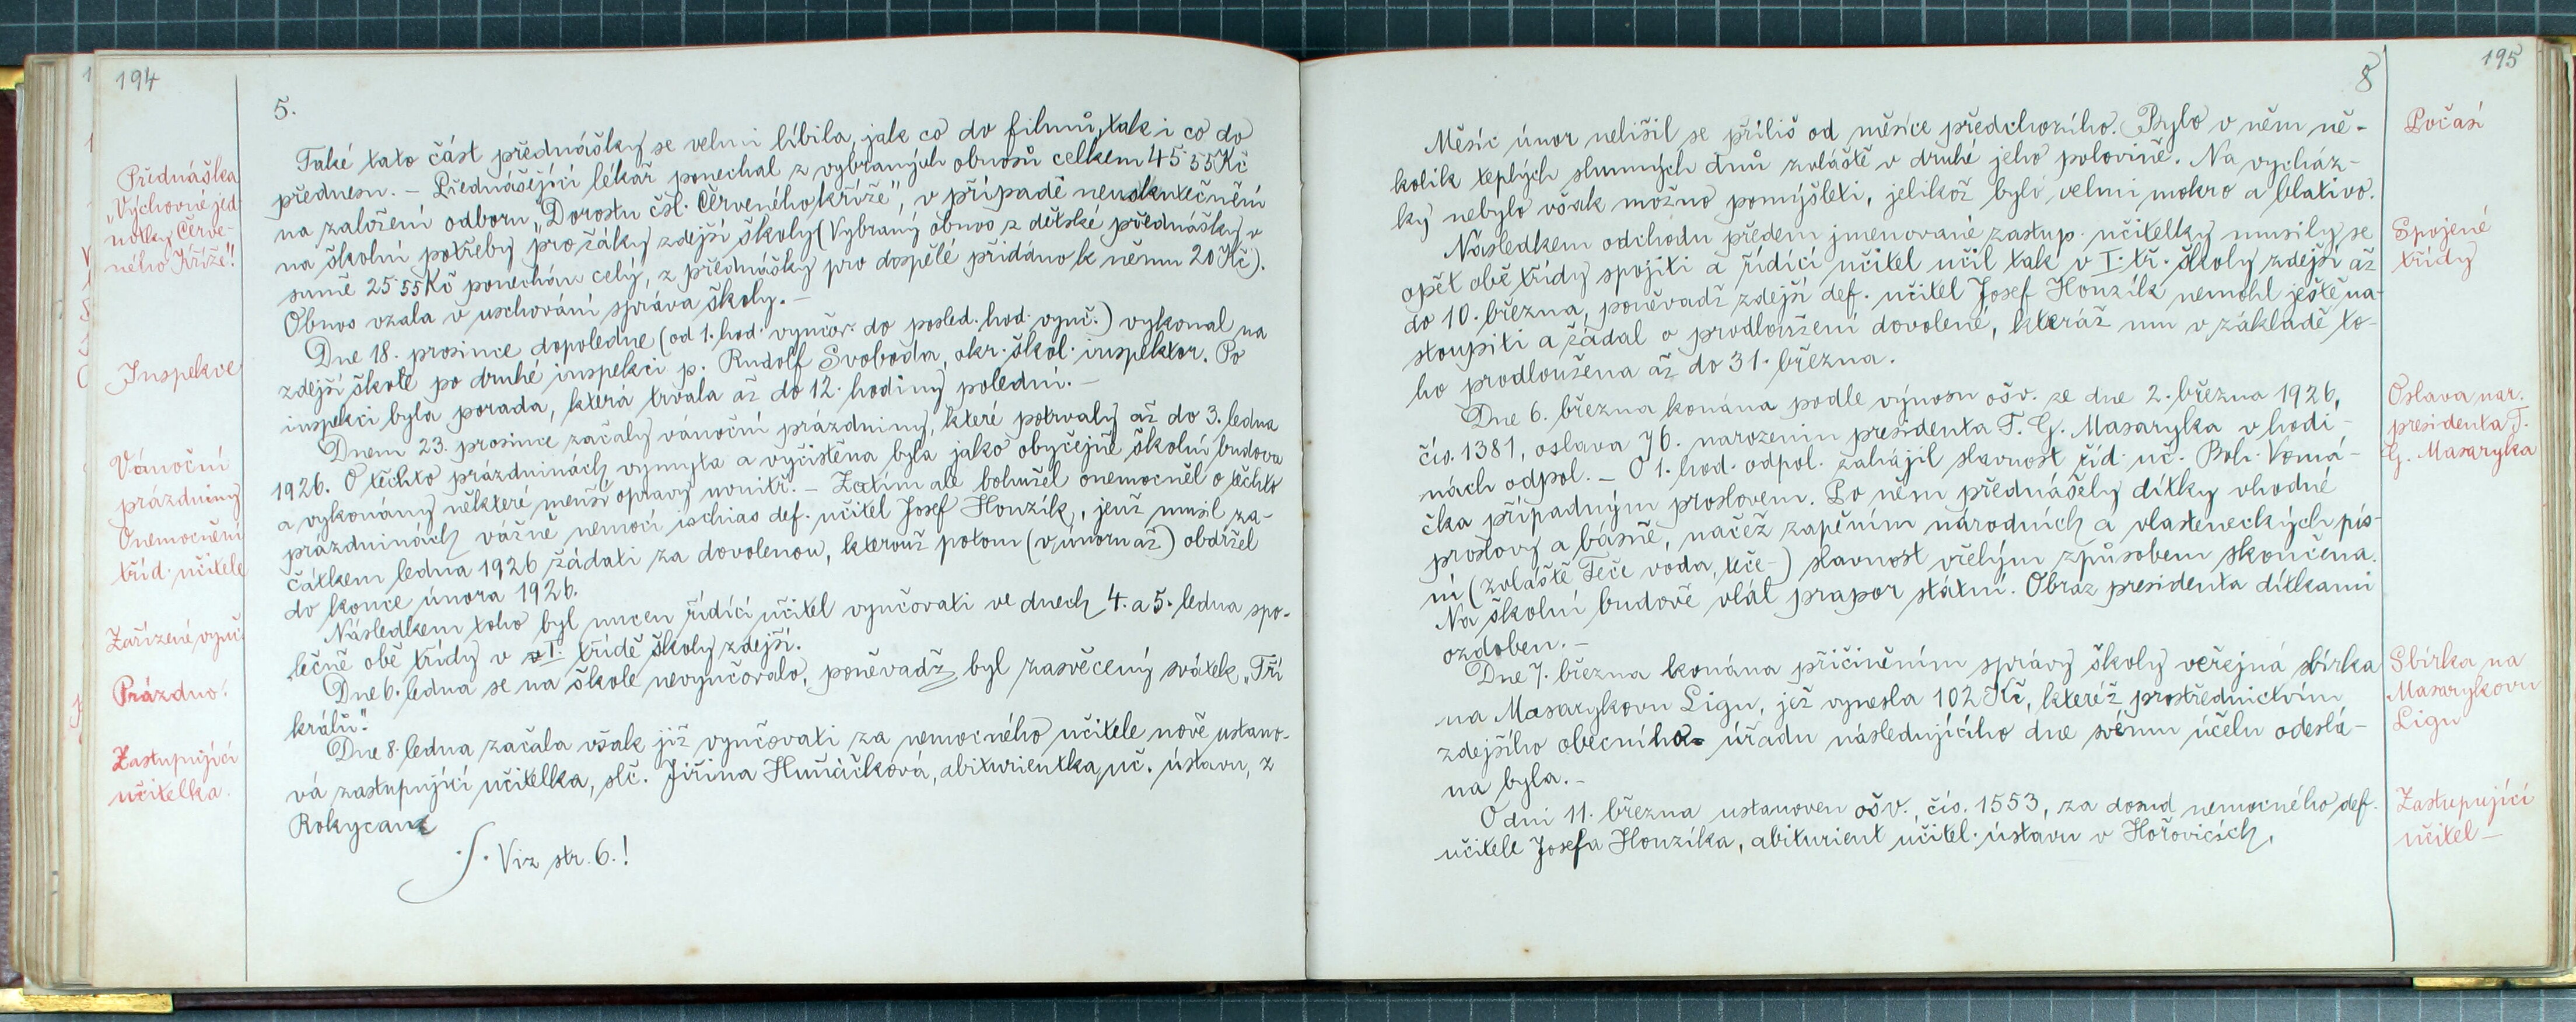 194
5.
Také tato část přednášky se velmi líbila, jak co do filmů, tak i co do
přednesu. – Přednášející lékař ponechal z vybraných obnosů celkem 45·55 Kč
na založení odboru „Dorostu čsl. Červeného kříže", v případě neuskutečnění
na školní potřeby pro žáky zdejší školy (Vybraný obnos z dětské přednášky v
sumě 25·55 Kč ponechán celý, z přednášky pro dospělé přidáno k němu 20 Kč).
Obnos vzala v uschování správa školy. –
Dne 18. prosince dopoledne (od 1. hod. vyučov. do posled. hod. vyuč.) vykonal na
zdejší škole po druhé inspekci p. Rudolf Svoboda, okr. škol. inspektor. Po
inspekci byla porada, která trvala až do 12. hodiny polední. –
Dnem 23. prosince začaly vánoční prázdniny, které potrvaly až do 3. ledna
1926. O těchto prázdninách vymyta a vyčistěna byla jako obyčejně školní budova
a vykonány některé menší opravy uvnitř. – Zatím ale bohužel onemocněl o těchto
prázdninách vážně nemocí ischias def. učitel Josef Honzík, jenž musil za-
čátkem ledna 1926 žádati za dovolenou, kterouž potom (v únoru až) obdržel
do konce února 1926.
Následkem toho byl nucen řídící učitel vyučovati ve dnech 4. a 5. ledna spo-
lečně obě třídy v I. třídě školy zdejší.
Dne 6. ledna se na škole nevyučovalo, poněvadž byl zasvěcený svátek „Tří
králů".
Dne 8. ledna začala však již vyučovati za nemocného učitele nově ustano-
vá zastupující učitelka, slč. Jiřina Huňáčková, abiturientka uč. ústavu, z
Rokycan
Viz str. 6.!
Přednáška
„Výchovné jed-
notky Červe-
ného Kříže"!
Inspekce
Vánoční
prázdniny
Onemocnění
tříd. učitele
Zařízené vyuč.
Prázdno!
Zastupující
učitelka.
195
8
Měsíc únor nelišil se příliš od měsíce předchozího. Bylo v něm ně-
kolik teplých slunných dnů zvláště v druhé jeho polovině. Na vycház-
ky nebylo však možno pomýšleti, jelikož bylo velmi mokro a blativo.
Následkem odchodu předem jmenované zastup. učitelky musily se
opět obě třídy spojiti a řídící učitel učil také v I. tř. školy zdejší až
do 10. března, poněvadž zdejší def. učitel Josef Honzík nemohl ještě na-
stoupiti a žádal o prodloužení dovolené, kteráž mu v základě to-
ho prodloužena až do 31. března.
Dne 6. března konána podle výnosu ošv. ze dne 2. března 1926,
čís. 1381, oslava 76. narozenin presidenta T. G. Masaryka v hodi-
nách odpol. – O 1. hod. odpol. zahájil slavnost říd. uč. Boh. Vomá-
čka případným proslovem. Po něm přednášely dítky vhodné
proslovy a básně, načež zapěním národních a vlasteneckých pís-
ní (zvláště Teče voda, teče –) slavnost vřelým způsobem skončena.
Na školní budově vlál prapor státní. Obraz presidenta dítkami
ozdoben. –
Dne 7. března konána přičiněním správy školy veřejná sbírka
na Masarykovu Ligu, jež vynesla 102 Kč, kteréž prostřednictvím
zdejšího obecního úřadu následujícího dne svému účelu odeslá-
na byla. –
O dni 11. března ustanoven ošv., čís. 1553, za dosud nemocného def.
učitele Josefa Honzíka, abiturient učitel. ústavu v Hořovicích,
Počasí
Spojené
třídy
Oslava nar.
presidenta T.
G. Masaryka
Sbírka na
Masarykovu
Ligu
Zastupující
učitel –